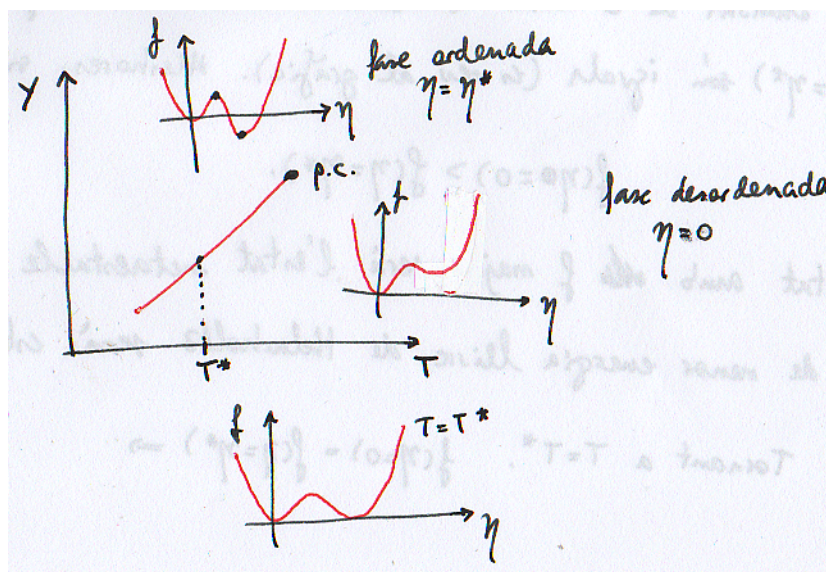 f
fase ordenada
η = η*
Y
η
p.c.
f
fase desordenada
η=0
η
T*
T
f
T=T*
η